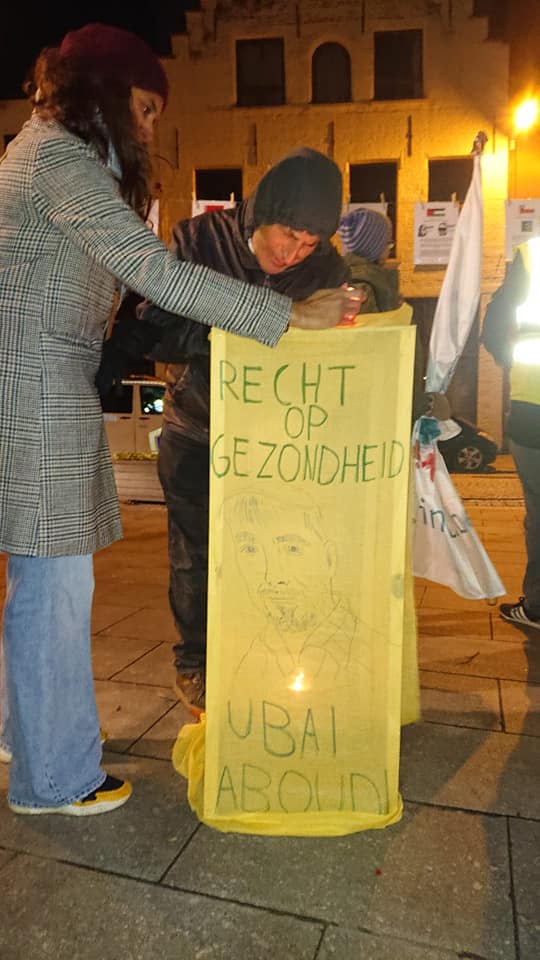 RECHT
OP
GEZONDHEID
UBAI
ABOUDI